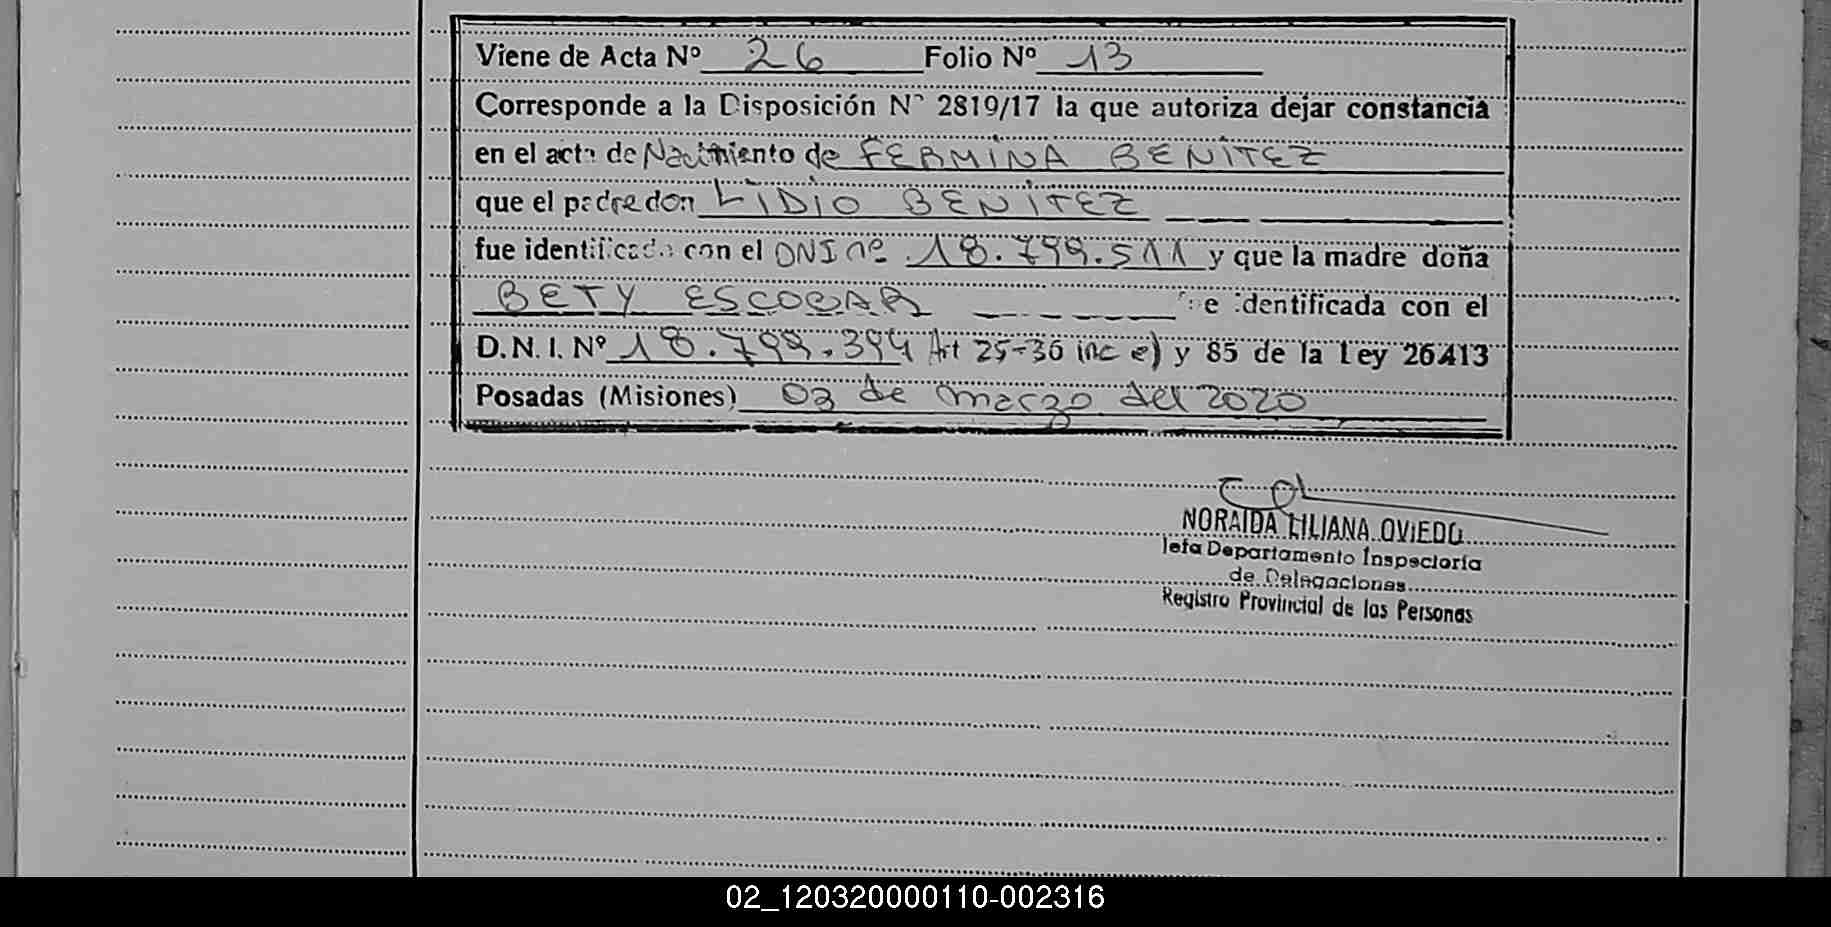 Viene de Acta Nº 26 Folio Nº 13
Corresponde a la Disposición Nº 2819/17 la que autoriza dejar constancia
en el acta de Nacimiento de FERMINA BENITEZ
que el padre don LIDIO BENITEZ
fue identificado con el DNI nº 18.799.511 y que la madre doña
BETY ESCOBAR fue identificada con el
D.N.I. Nº 18.799.394 Art 25-36 inc e) y 85 de la Ley 26413
Posadas (Misiones) 03 de marzo del 2020
NORAIDA LILIANA OVIEDO
Jefa Departamento Inspectoría
de Delegaciones
Registro Provincial de las Personas
02_120320000110-002316